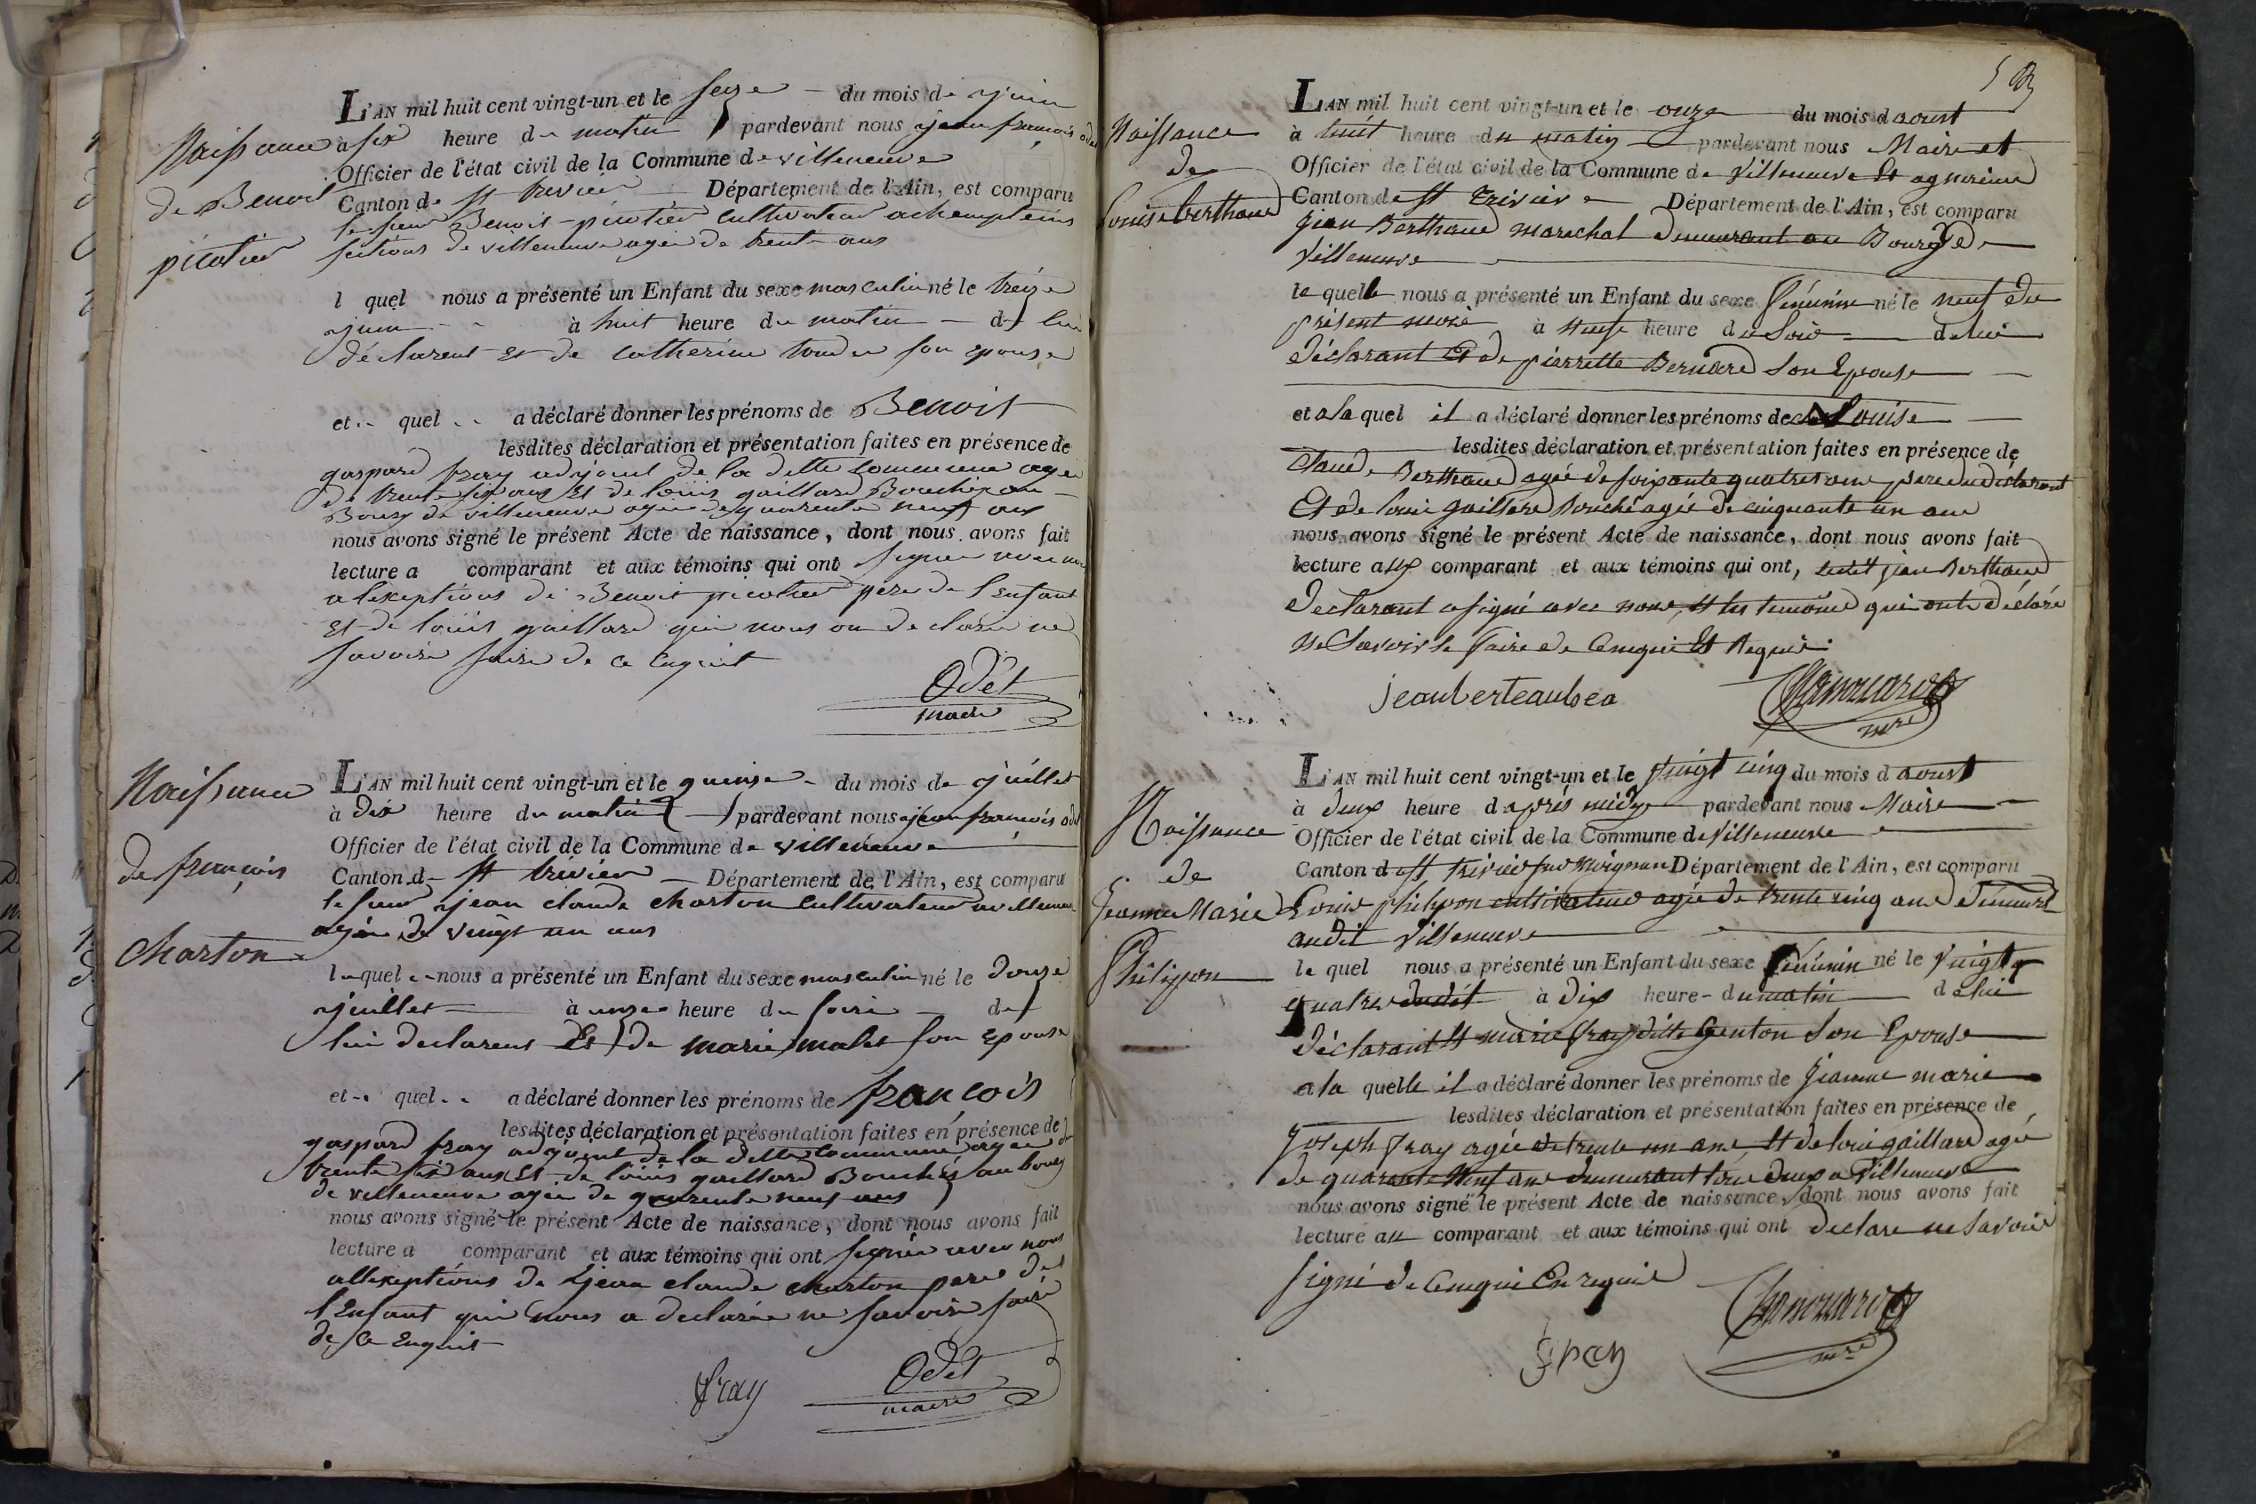 L'AN mil huit cent vingt-un et le seize du mois de juin
Naissance
à six heure du matin pardevant nous jean françois odet
Officier de l'état civil de la Commune de villeneuve
de Benoit
Canton de st trivier Département de l'Ain, est comparu
le sieur Benoit picotier cultivateur
picotier
sections de villeneuve agée de trente ans
l quel nous a présenté un Enfant du sexe masculin né le treize
juin à huit heure du matin de lui
déclarent et de catherine son epouse
et quel a déclaré donner les prénoms de Benoit
lesdites déclaration et présentation faites en présence de
gaspard fray adjoint de la ditte commune agée
de trente six ans et de loüis gaillard Bouchér au
Bourg de villeneuve agée de quarente neuf ans
nous avons signé le présent Acte de naissance, dont nous avons fait
lecture a comparant et aux témoins qui ont signée avec nous
a lexeptions de Benoit picotier pere de l'enfant
et de loüis gaillard qui nous on declarée ne
savoire faire de ce enquit
Odet
maire
L'AN mil huit cent vingt-un et le quinse du mois de juillet
Naissance
à dix heure du matin pardevant nous jean françois odet
Officier de l'état civil de la Commune de villeneuve
de françois
Canton d st trivier Département de l'Ain, est comparu
le sieur jean claude charton cultivateur a villeneuve
agée de vingt un ans
charton
lequel nous a présenté un Enfant du sexe masculin né le douze
juillet à unze heure du soire de
lui declarent Et de marie malet son Epouse
et quel a déclaré donner les prénoms de françois
lesdites déclaration et présentation faites en présence de
gaspard fray adjoint de la ditte commune agée de
trente six ans Et de loüis gaillard Bouchér au bourg
de villeneuve agée de quarente neuf ans
nous avons signé le présent Acte de naissance, dont nous avons fait
lecture a comparant et aux témoins qui ont signée avec nous
allexeptions de jean claude charton pere de
l'Enfant qui nous a declarée ne savoire faire
de ce Enquit
fray
Odet
maire
L'AN mil huit cent vingt-un et le onze du mois d aoust
Naissance
à huit heure du matin pardevant nous Maire et
Officier de l'état civil de la Commune de Villeneuve Et agnereins
de
Canton de st trivier Département de l'Ain, est comparu
Louise berthaud
jean Berthaud marechal demeurant au Bourg de
Villeneuve
le quelle nous a présenté un Enfant du sexe féminin né le neuf du
présent mois à neuf heure du Soir de lui
déclarant Et de pierrette Bernard Son Epouse
et a la quel il a déclaré donner les prénoms de Louise
lesdites déclaration et présentation faites en présence de
Claude Berthaud agée de soixante quatres ans pere du déclarant
Et de louis gaillard bouché agée de cinquante un ans
nous avons signé le présent Acte de naissance, dont nous avons fait
lecture aux comparant et aux témoins qui ont, ledit jean Berthaud
Declarant a signé avec nous, Et les temoins qui ont déclaré
ne Savoir le faire de Cenquis Et Requis
jeauberteaubea
maire
L'AN mil huit cent vingt-un et le vingt cinq du mois d aoust
Naissance
à deux heure d après midy pardevant nous Maire
Officier de l'état civil de la Commune de Villeneuve
de
Canton d st trivier sur Moignans Département de l'Ain, est comparu
Jeanne Marie
Louis philipon cultivateur agée de trente cinq ans demeurt
audit Villeneuve
Philippon
le quel nous a présenté un Enfant du sexe féminin né le vingt
quatres dudit à dix heure du matin de lui
déclarant Et marie fray ditte Genton Son Epouse
a la quelle il a déclaré donner les prénoms de Jeanne marie
lesdites déclaration et présentation faites en présence de
Joseph fray agée de trente un ans, Et de louis gaillard agée
de quarante neuf ans demeurant tous deux a Villeneuve
nous avons signé le présent Acte de naissance, dont nous avons fait
lecture au comparant et aux témoins qui ont declare ne Savoir
signé de Cenquis En requis
fray